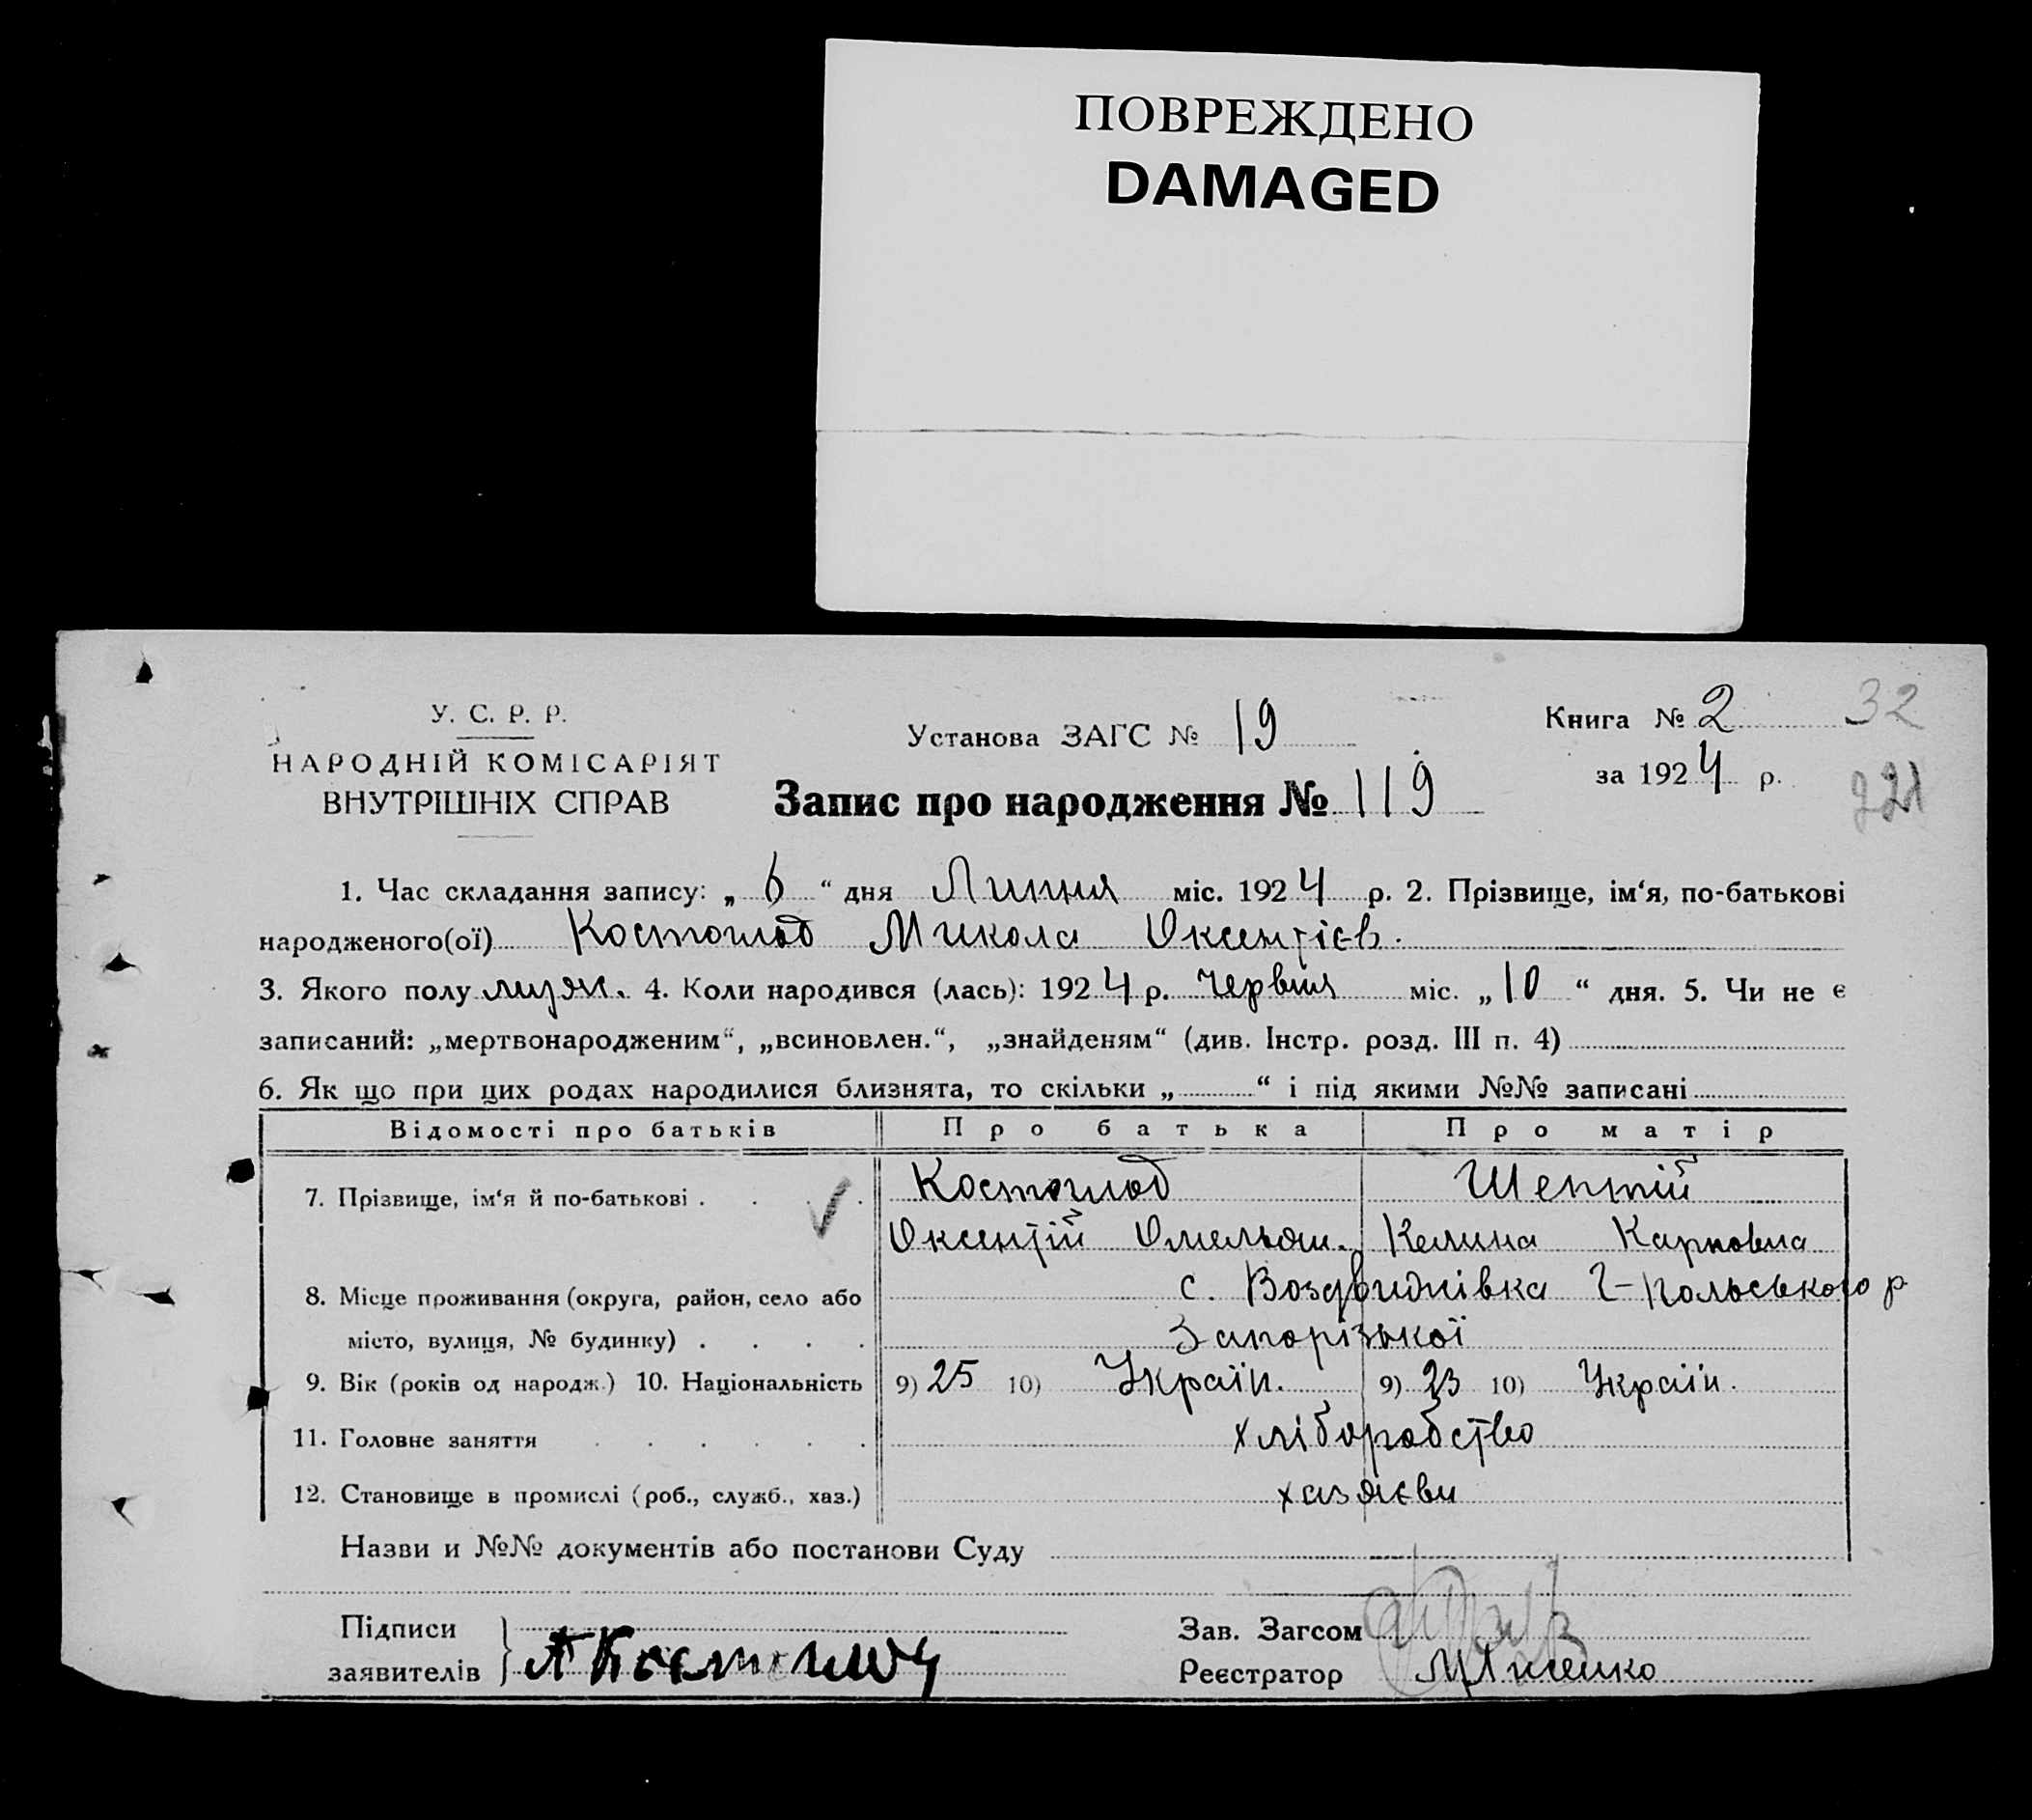 ПОВРЕЖДЕНО
DAMAGED
У. С. Р. Р.
НАРОДНІЙ КОМІСАРІЯТ
ВНУТРІШНІХ СПРАВ
Установа ЗАГС № 19
Книга № 2 32
за 1924 р.
221
Запис про народження № 119
1. Час складання запису: „ 6 “ дня Липня міс. 1924 р. 2. Прізвище, ім‘я, по-батькові
народженого(ої) Костоглод Микола Оксентієв.
3. Якого полу муж. 4. Коли народився (лась): 1924 р. Червня міс. „ 10 “ дня. 5. Чи не є
записаний: „мертвонародженим“, „всиновлен.“, „знайденям“ (див. Інстр. розд. III п. 4)
6. Як що при цих родах народилися близнята, то скільки „ “ і під якими №№ записані
Відомості про батьків Про батька Про матір
7. Прізвище, ім‘я й по-батькові . . . . Костоглод Шептій
Оксентій Омельян. Келина Карповна
8. Місце проживання (округа, район, село або с. Воздвижівка Г-Польського р
місто, вулиця, № будинку) . . . . Запорізької
9. Вік (років од народж.) 10. Національність 9) 25 10) Україн. 9) 23 10) Україн.
11. Головне заняття . . . . . . хліборобство
12. Становище в промислі (роб., служб., хаз.) хазяєви
Назви и №№ документів або постанови Суду
Підписи Зав. Загсом
заявителів А Костоглод Реєстратор